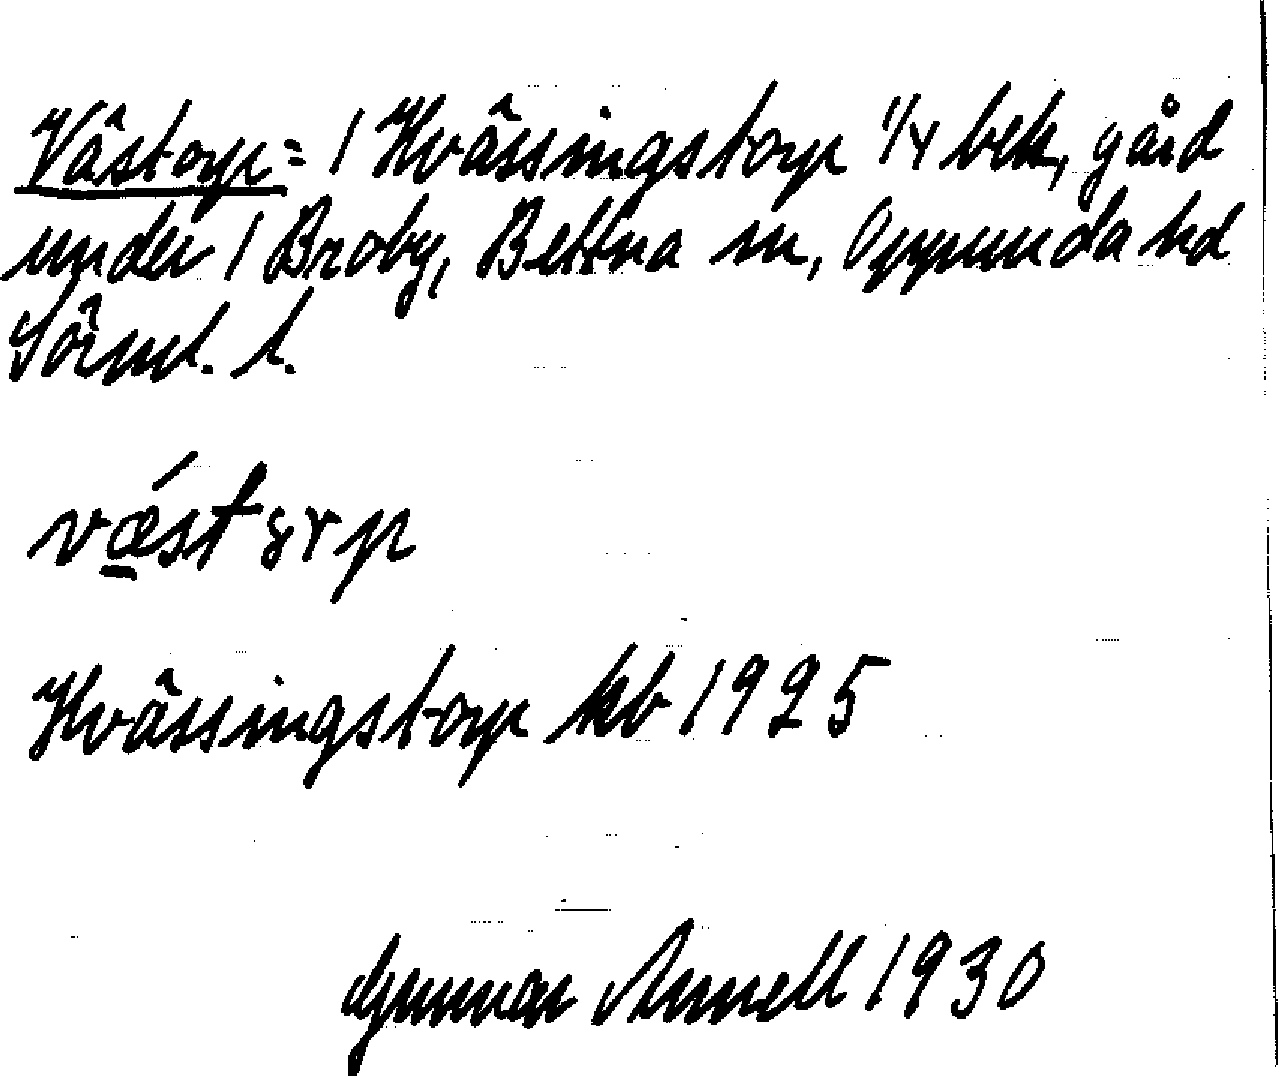 Västorp = 1 Hvässingstorp 1/4 bek, gård
under 1 Broby, Bettna sn, Oppunda hd
Södml. l.
vǽ̱stȣrp
Hvässingstorp kb 1925
Gunnar Arnell 1930